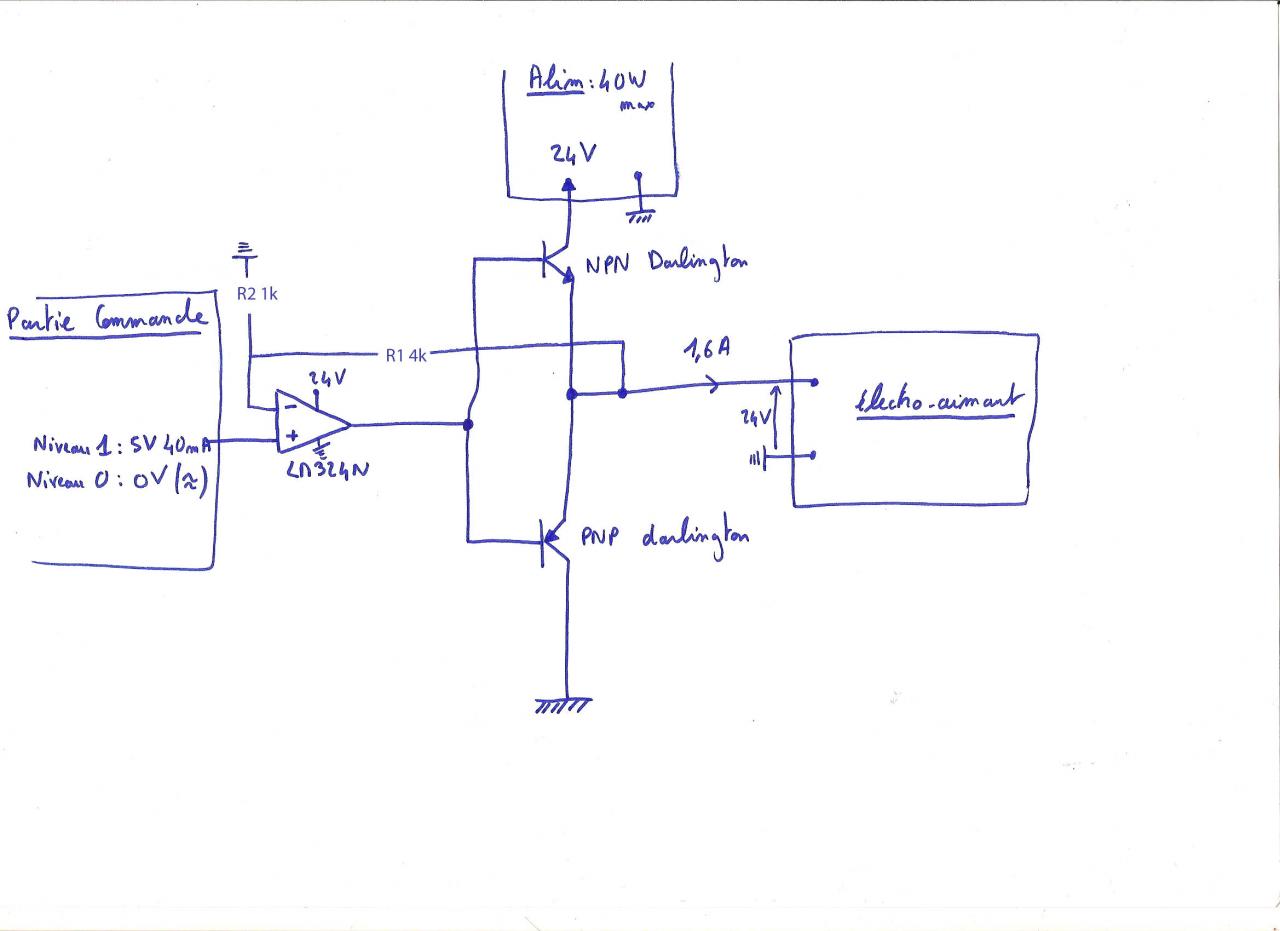 Alim : 40W
max
24V
NPN Darlington
R2 1k
Partie Commande
R1 4k
24V
1,6A
électro-aimant
24V
Niveau 1 : 5V 40mA
LM324N
Niveau 0 : 0V (≈)
PNP darlington